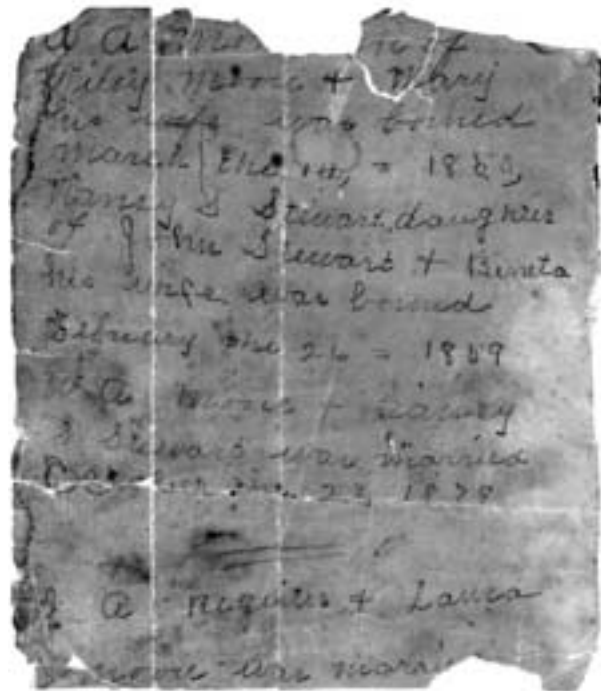 W A Moore son of
Wiley Moore + Mary
his wife was borned
March the 1859
Nancy S Stewart daughter
of John Stewart + Bineta
his wife was borned
February the 26 = 1859
W A Moore + Nancy
S Stewart was married
December the 23 1878
J A + Laura
Moore was married